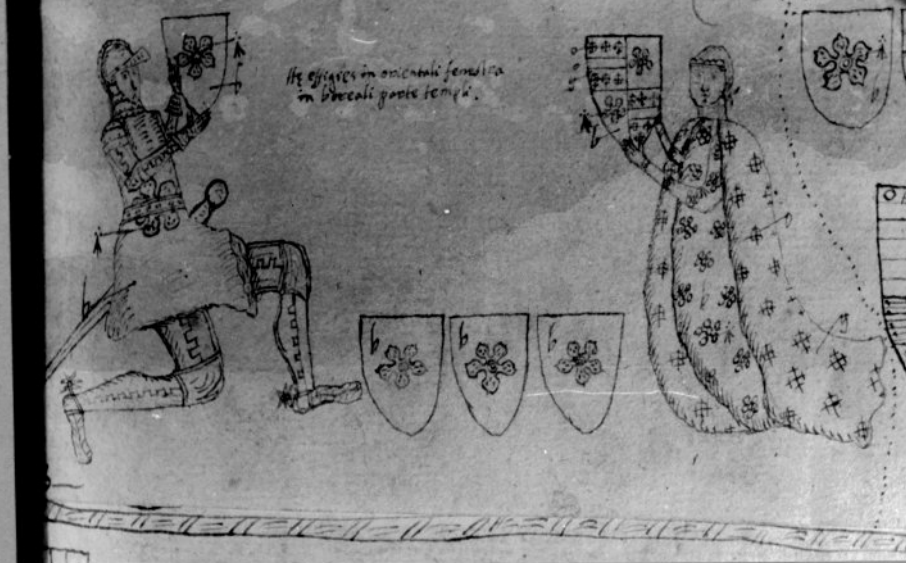 Hę effigies in orientali fenestra
in boreali parte templi.
b
b
b
b
b